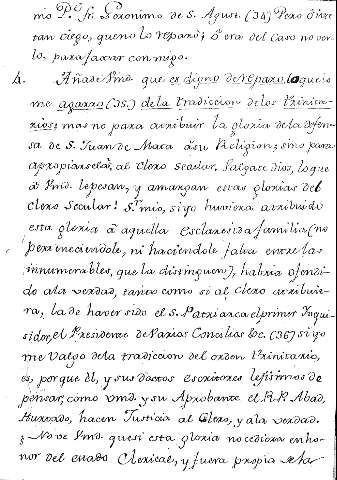 mo P.e fr. Geronimo de S. Agust. (34) Pero ò iva
tan ciego, que no lo reparò; ò era del caso no ver-
lo, para faxar conmigo.
4. Añade Vmd. que es digno de reparo, lo que io
me agarro (35.) de la tradiccion de los Trinita-
rios: mas no para atribuir la gloria de la defen-
sa de S. Juan de Mata à su Religion; sino para
apropiarsela al Clero secular. Valgate dios, lo que
à Vmd. le pesan, y amargan estas glorias del
Clero secular! S.r mio, si yo huviera atribuido
esta gloria à aquella esclaresida familia (no
perteneciendole, ni haciendole falta entre las
innumerables, que la distinguen), habria ofendi-
do a la verdad, tanto como si al Clero atribuie-
ra, la de haver sido el S. Patriarca el primer Inqui-
sidor, el Presidente de varios Concilios &c. (36) si yo
me valgo de la tradiccion del orden Trinitario,
es, porque èl, y sus doctos escritores lejissimos de
pensar, como Vmd. y su Aprobante el R. P. Abad,
Hurtado, hacen Justicia al Clero, y a la verdad.
¿No ve Vmd. que si esta gloria no cediera en ho-
nor del estado Clerical, y fuera propia de la